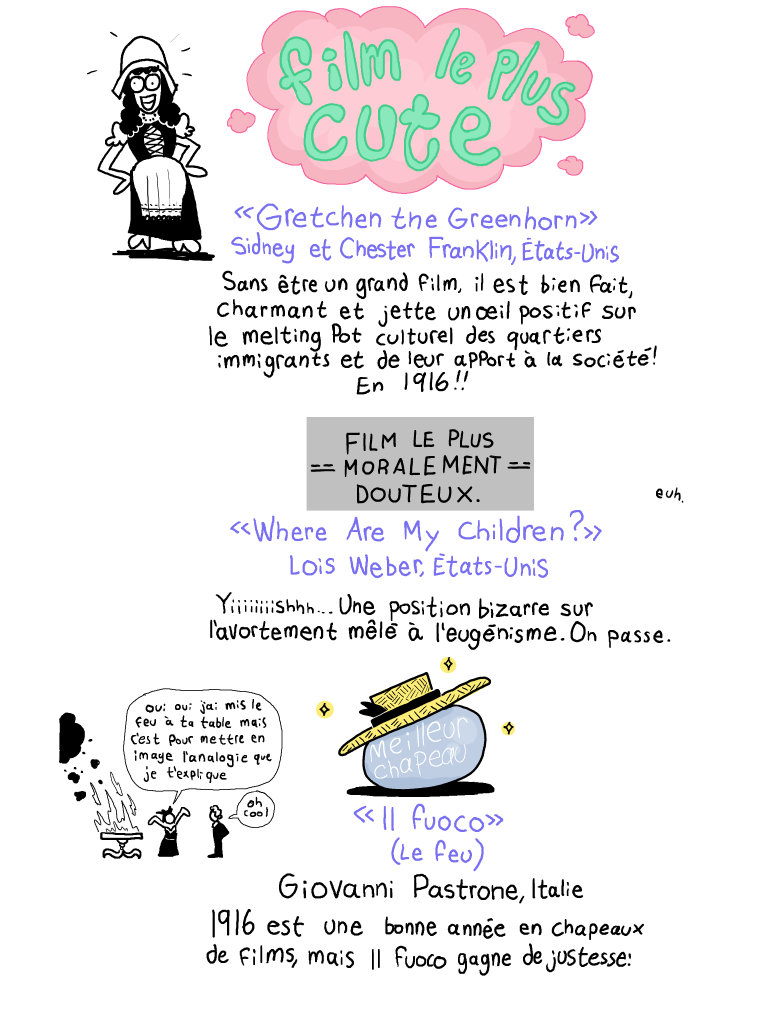 film le plus
cute
«Gretchen the Greenhorn»
Sidney et Chester Franklin, États-Unis
Sans être un grand film, il est bien fait,
charmant et jette un œil positif sur
le melting Pot culturel des quartiers
immigrants et de leur apport à la société!
En 1916!!
FILM LE PLUS
== MORALEMENT ==
DOUTEUX.
euh.
«Where Are My Children?»
Lois Weber, États-Unis
Yiiiiiiiishhh... Une position bizarre sur
l'avortement mêlé à l'eugénisme. On passe.
oui oui j'ai mis le
feu à ta table mais
c'est pour mettre en
image l'analogie que
je t'explique
oh
cool
Meilleur
chapeau
«Il fuoco»
(Le feu)
Giovanni Pastrone, Italie
1916 est une bonne année en chapeaux
de films, mais Il fuoco gagne de justesse: